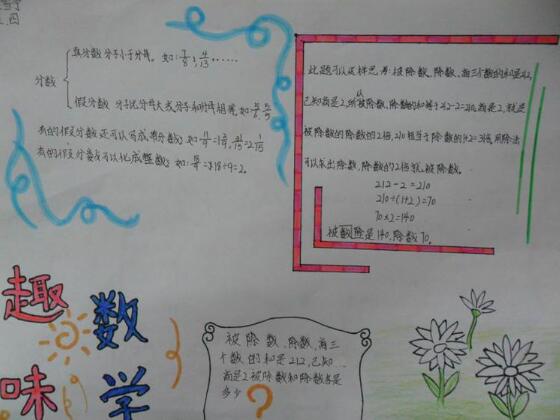 真分数:分子小于分母。如:7/8,4/13,……
分数
假分数:分子比分母大或分子和分母相等,如:
有的假分数还可以写成带分数;如:
有的假分数可以化成整数;如:18÷9=2。
此题可以这样思考:被除数、除数、商三个数的和是212,
已知商是2,所以被除数、除数的和等于212-2=210,商是2,就是
被除数的除数的2倍,210相当于除数的(1+2)=3倍,用除法
可以求出除数,除数的2倍就是被除数。
212-2=210
210÷(1+2)=70
70×2=140
被除数是140,除数70。
趣味
数学
被除数、除数、商三
个数的和是212,已知
商是2被除数和除数各是
多少?